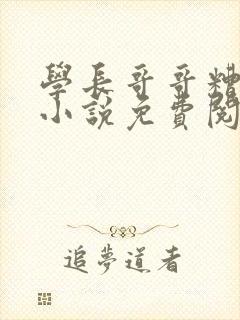 學長哥哥糟
小說免費閱
追夢道者